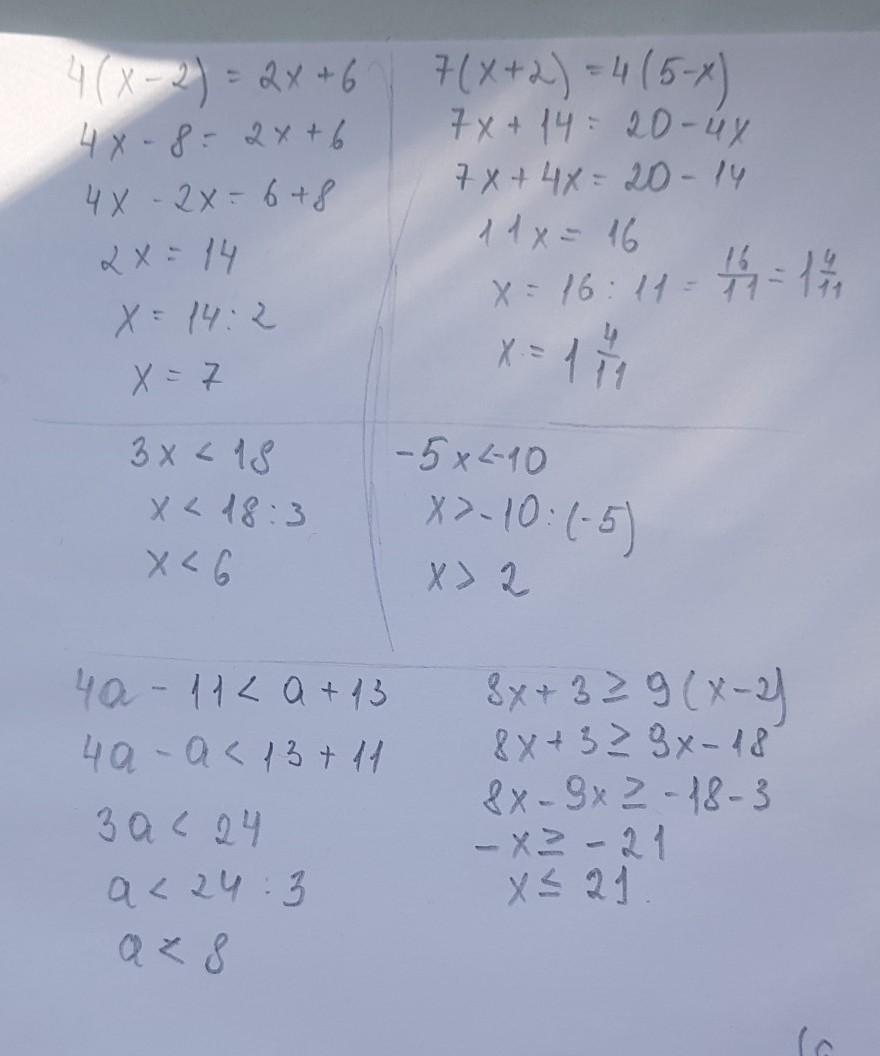 4(x-2) = 2x+6
4x - 8 = 2x+6
4x - 2x = 6+8
2x = 14
x = 14:2
x = 7
7(x+2) = 4(5-x)
7x + 14 = 20-4x
7x+4x = 20-14
11x = 16
x = 16:11 = 16/11 = 1 4/11
x = 1 4/11
3x < 18
x < 18:3
x < 6
-5x<-10
x>-10:(-5)
x> 2
4a - 11 < a+13
4a - a < 13+11
3a < 24
a < 24:3
a < 8
8x+3 ≥ 9(x-2)
8x+3 ≥ 9x-18
8x-9x ≥ -18-3
-x ≥ -21
x ≤ 21.